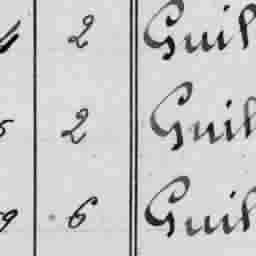 2 Guil
2 Guil
9 6 Guil